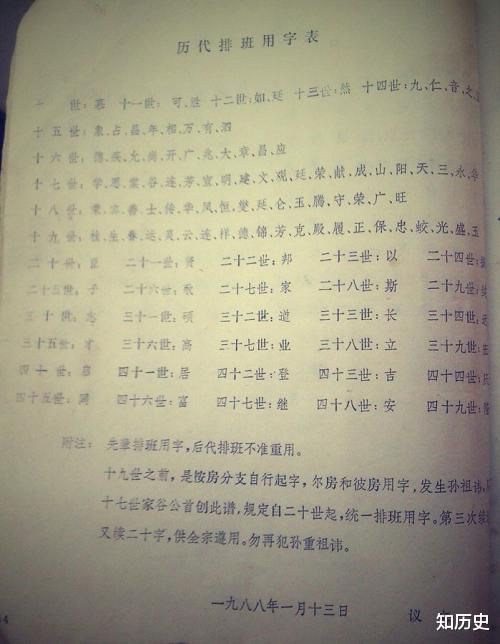 历代排班用字表
世：十一世：可、胜 十二世：如、廷 十三世：然 十四世：九、仁、音、之、
十五世：象、占、昌、年、相、万、有、泗
十六世：德、英、允、尚、开、广、兆、大、章、昌、应
十七世：学、思、棠、谷、连、芳、宣、明、建、文、观、廷、荣、献、成、山、阳、天、三、永、华
十八世：宾、善、士、传、华、凤、恒、燮、廷、仑、玉、腾、守、荣、广、旺
十九世：桂、生、春、运、灵、云、连、祥、德、锦、芳、克、殿、履、正、保、忠、蛟、光、盛、玉
二十世：臣 二十一世：贤 二十二世：邦 二十三世：以 二十四世：
二十五世：子 二十六世：敬 二十七世：家 二十八世：斯 二十九世：
三十世：志 三十一世：硕 三十二世：道 三十三世：长 三十四世：远
三十五世：才 三十六世：高 三十七世：业 三十八世：立 三十九世：
四十世：四十一世：居 四十二世：登 四十三世：吉 四十四世：
四十五世：同 四十六世：富 四十七世：继 四十八世：安 四十九世：
附注：先辈排班用字，后代排班不准重用。
十九世之前，是按房分支自行起字，尔房和彼房用字，发生孙祖讳，
十七世家谷公首创此谱，规定自二十世起，统一排班用字。第三次续
又续二十字，供全宗遵用。勿再犯孙重祖讳。
一九八八年一月十三日 议
4
知历史